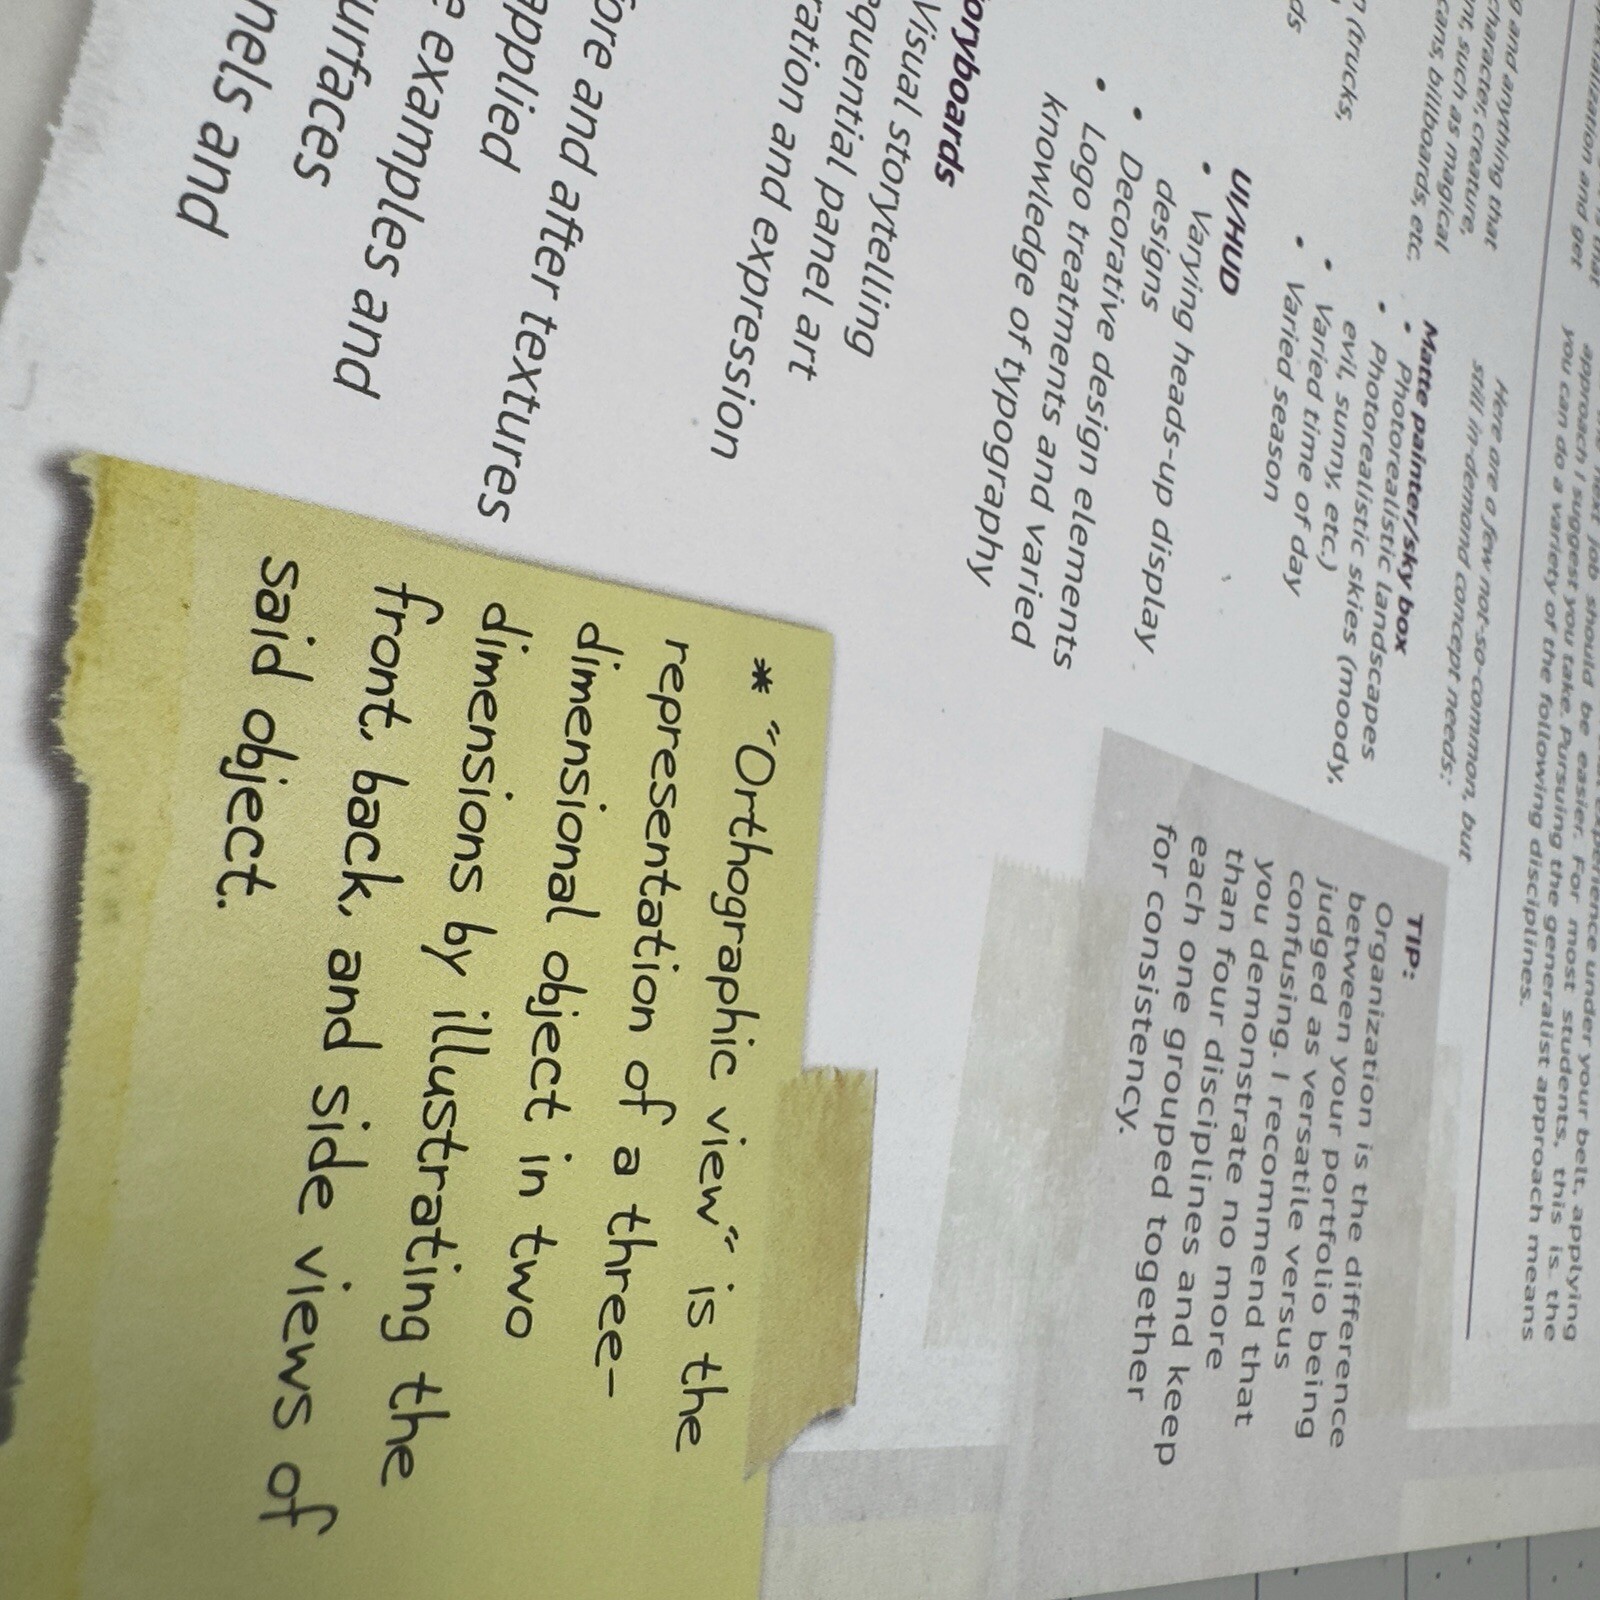 and anything that
character, creature,
such as magical
billboards, etc.
(trucks,
and get
job should be easier. For most students, this is the
approach I suggest you take. Pursuing the generalist approach means
you can do a variety of the following disciplines.
experience under your belt, applying
Here are a few not-so-common, but
still in-demand concept needs:
Matte painter/sky box
• Photorealistic landscapes
• Photorealistic skies (moody,
evil, sunny, etc.)
• Varied time of day
• Varied season
UI/HUD
• Varying heads-up display
designs
• Decorative design elements
• Logo treatments and varied
knowledge of typography
TIP:
Organization is the difference
between your portfolio being
judged as versatile versus
confusing. I recommend that
you demonstrate no more
than four disciplines and keep
each one grouped together
for consistency.
Visual storytelling
panel art
and expression
and after textures
applied
examples and
and
* "Orthographic view" is the
representation of a three-
dimensional object in two
dimensions by illustrating the
front, back, and side views of
said object.